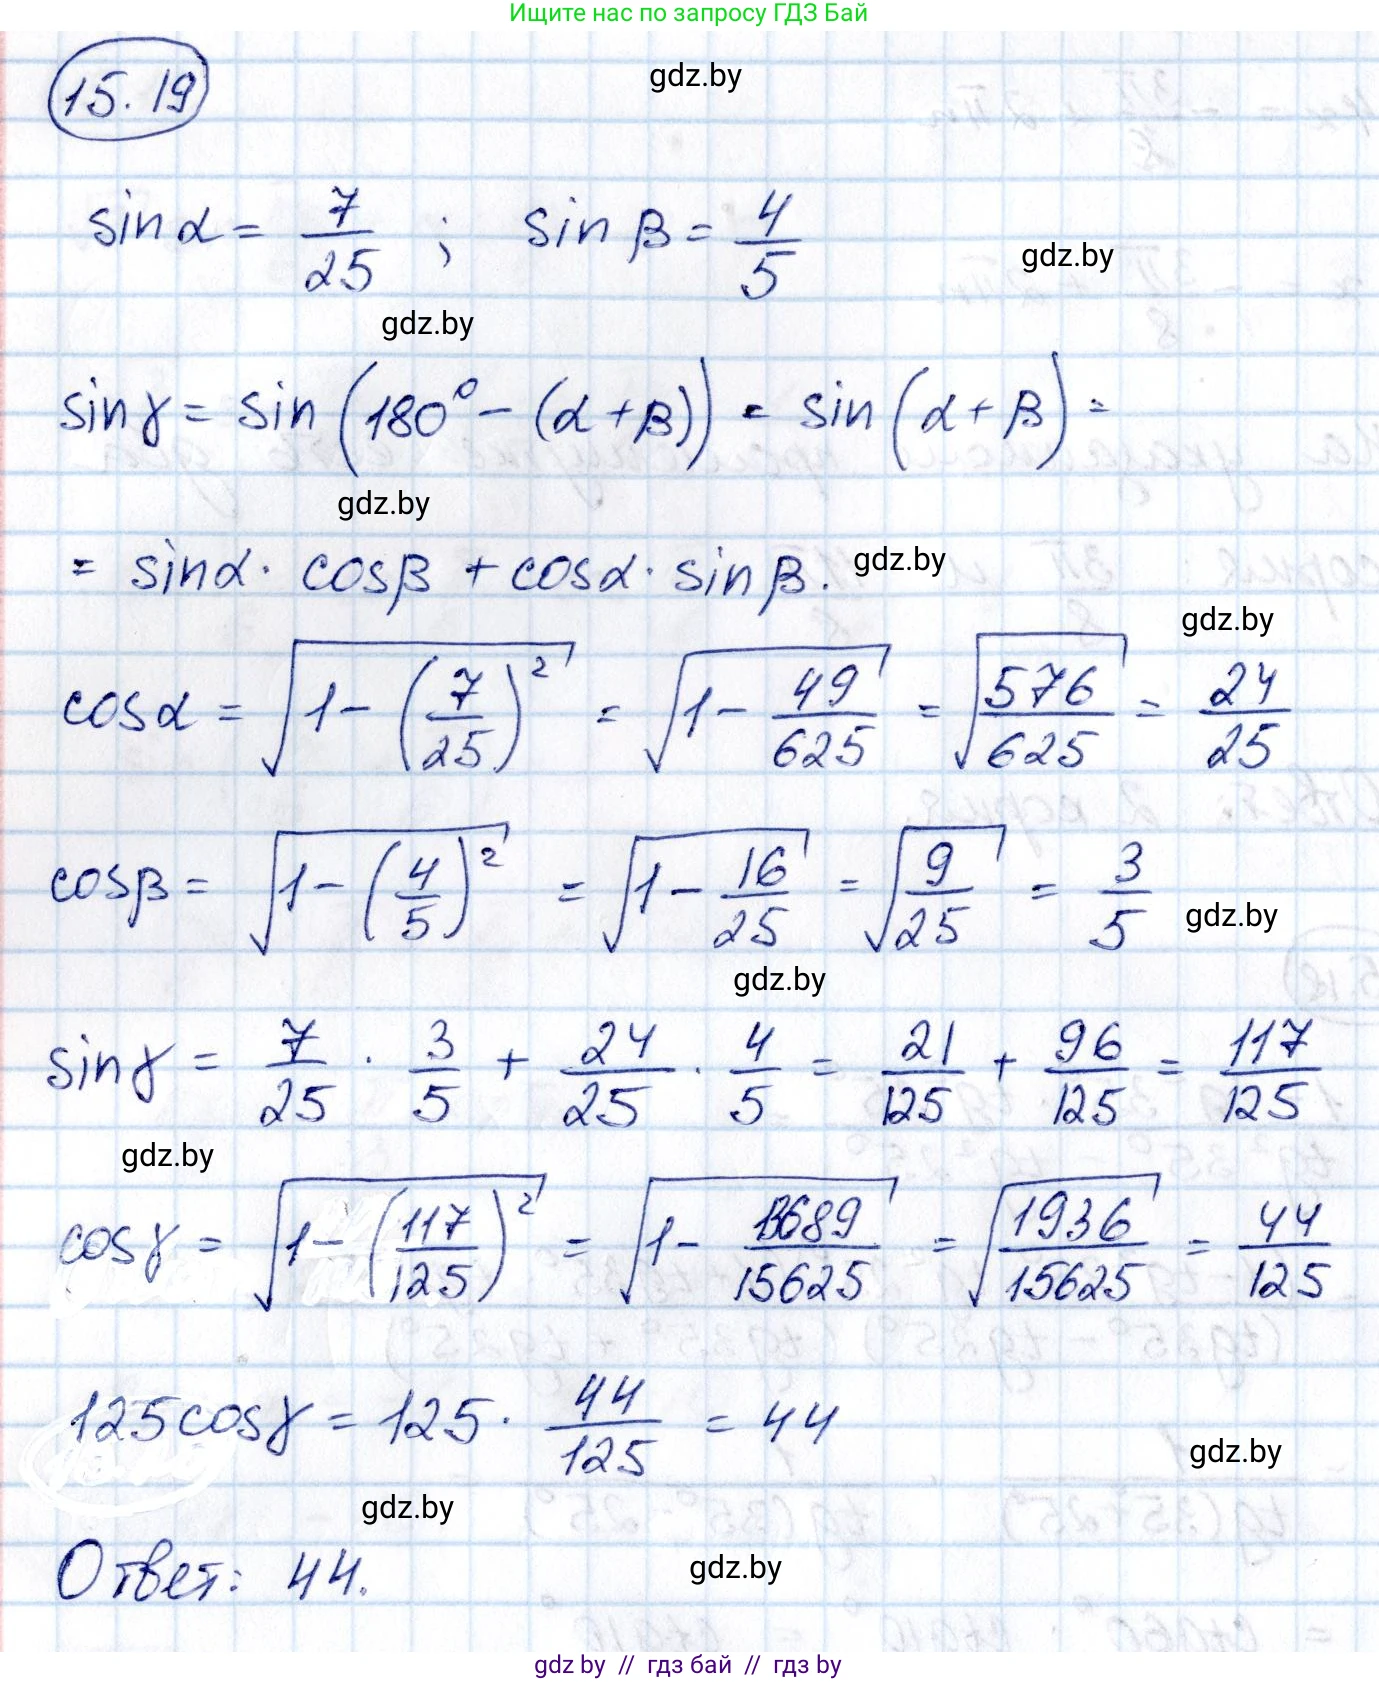 Ищите нас по запросу ГДЗ Бай
15.19
gdz.by
sin α = 7/25 ; sin β = 4/5
gdz.by
gdz.by
sin γ = sin (180° − (α + β)) = sin (α + β) =
gdz.by
= sin α · cos β + cos α · sin β.
gdz.by
gdz.by
cos α = √(1 − (7/25)²) = √(1 − 49/625) = √(576/625) = 24/25
cos β = √(1 − (4/5)²) = √(1 − 16/25) = √(9/25) = 3/5
gdz.by
gdz.by
sin γ = 7/25 · 3/5 + 24/25 · 4/5 = 21/125 + 96/125 = 117/125
gdz.by
cos γ = √(1 − (117/125)²) = √(1 − 13689/15625) = √(1936/15625) = 44/125
125 cos γ = 125 · 44/125 = 44
gdz.by
gdz.by
Ответ: 44.
gdz.by
gdz by // гдз бай // гдз by